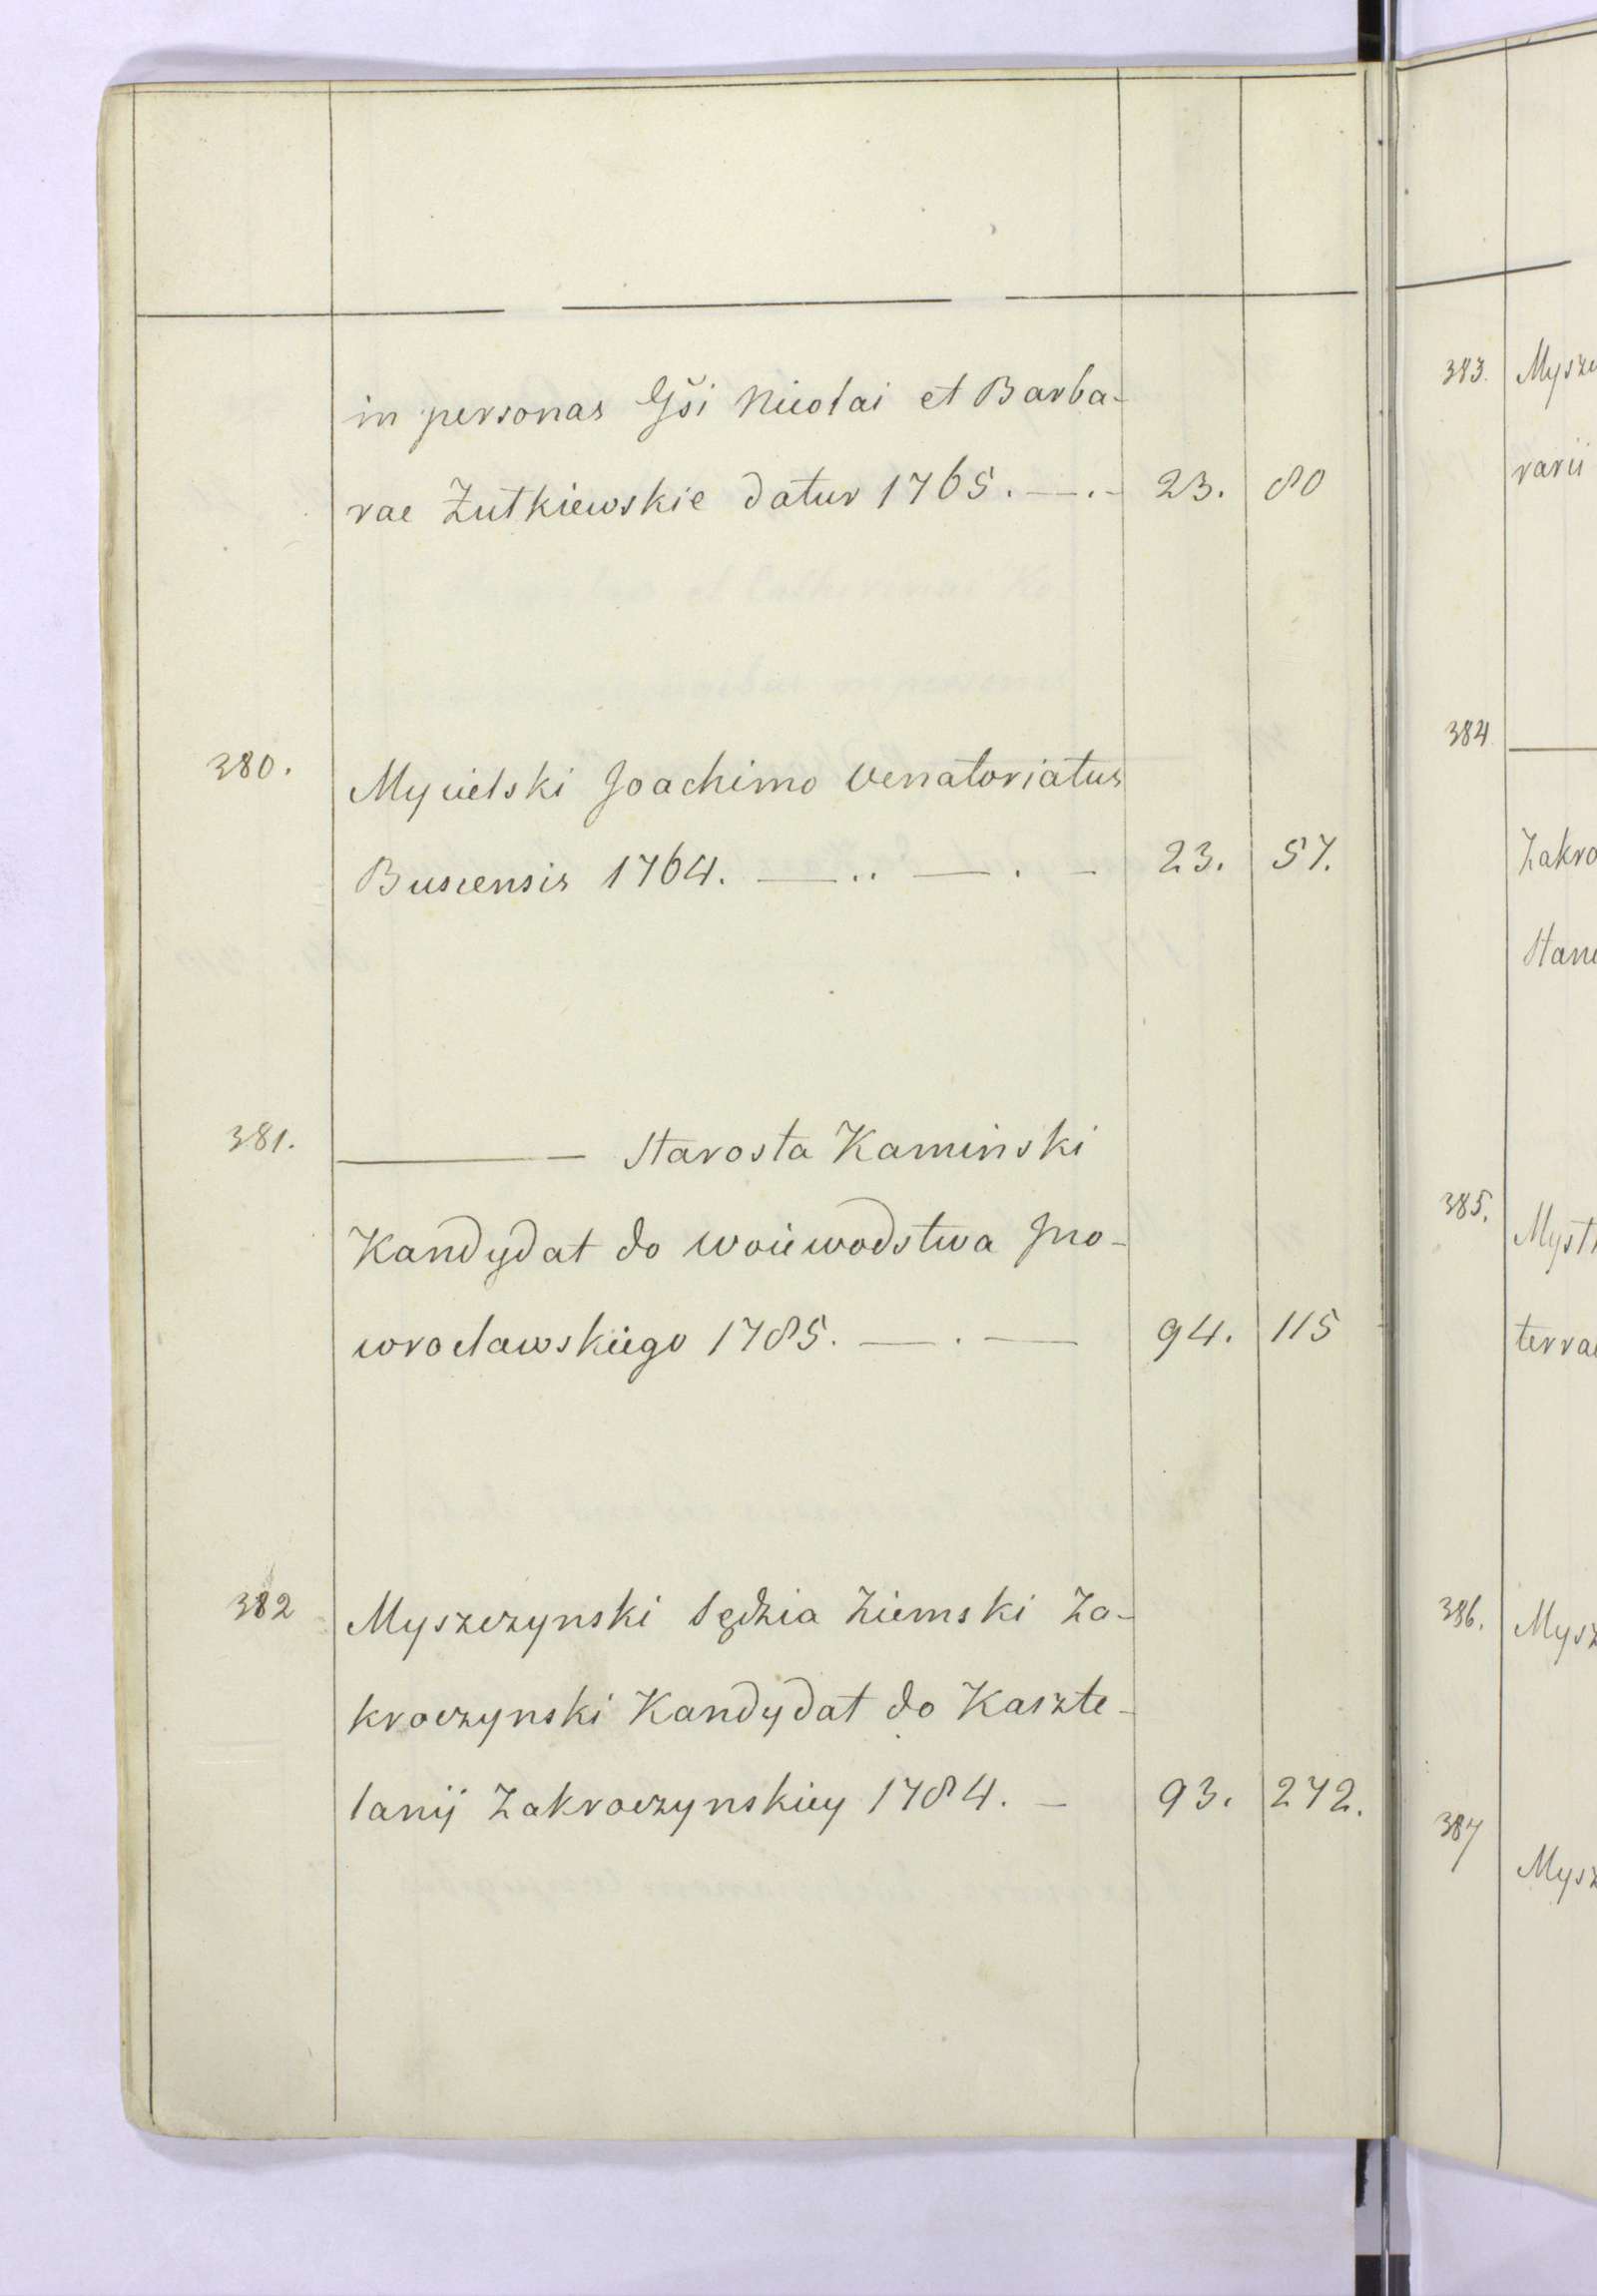 in personas Gsi Nicolai et Barba-
rae Zutkiewskie datur 1765. —.- 23. 80
380. Mycielski Joachimo Venatoriatus
Buscensis 1764. — .. — . - 23. 57.
381. ——— Starosta Kaminski
Kandydat do woiewodstwa Jno-
wrocławskiego 1785. — . — 94. 115
382 Myszczynski Sędzia Ziemski Za-
kroczynski Kandydat do Kaszte-
lanij Zakroczynskiey 1784. - 93. 272.
383.
rarii
384 ———
385.
386.
387